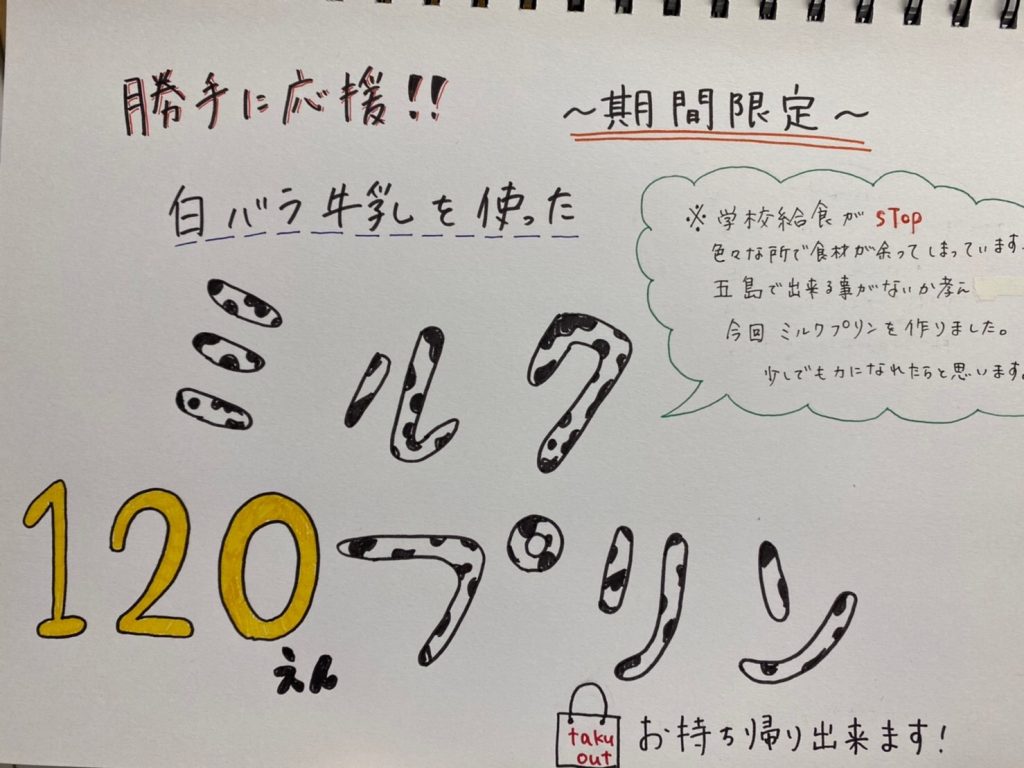 勝手に応援!!
～期間限定～
白バラ牛乳を使った
ミルク
プリン
120
えん
※学校給食が STOP
色々な所で食材が余ってしまっています。
五島で出来る事がないか考え
今回 ミルクプリンを作りました。
少しでも力になれたらと思います。
taku
out
お持ち帰り出来ます!